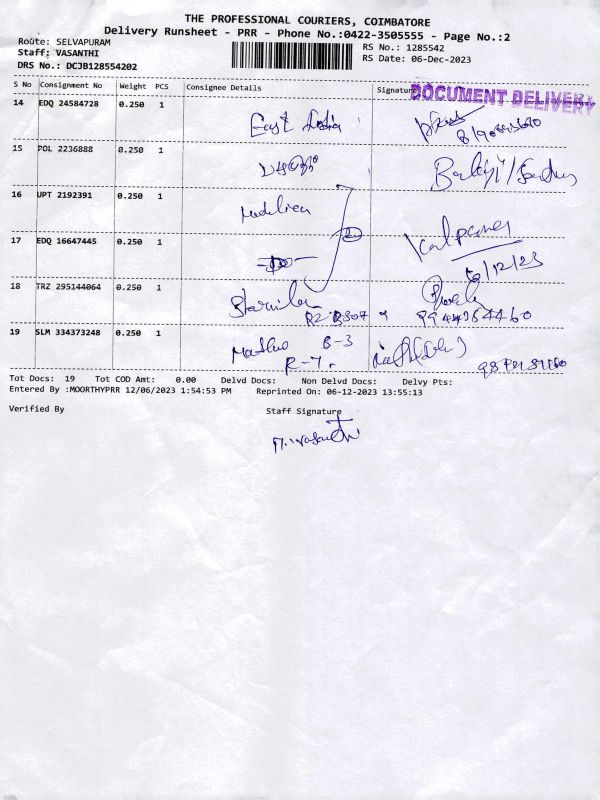 THE PROFESSIONAL COURIERS, COIMBATORE
Delivery Runsheet - PRR - Phone No.:0422-3505555 - Page No.:2
Route: SELVAPURAM
Staff: VASANTHI
DRS No.: DCJB128554202
RS No.: 1285542
RS Date: 06-Dec-2023
S No Consignment No Weight PCS Consignee Details Signature
DOCUMENT DELIVERY
14 EDQ 24584728 0.250 1 East India
15 POL 2236888 0.250 1
16 UPT 2192391 0.250 1
Kalpana
17 EDQ 16647445 0.250 1
6/12/23
18 TRZ 295144064 0.250 1
19 SLM 334373248 0.250 1 B-3
R-7.
Tot Docs: 19 Tot COD Amt: 0.00 Delvd Docs: Non Delvd Docs: Delvy Pts:
Entered By :MOORTHYPRR 12/06/2023 1:54:53 PM Reprinted On: 06-12-2023 13:55:13
Verified By Staff Signature
M.Vasanthi